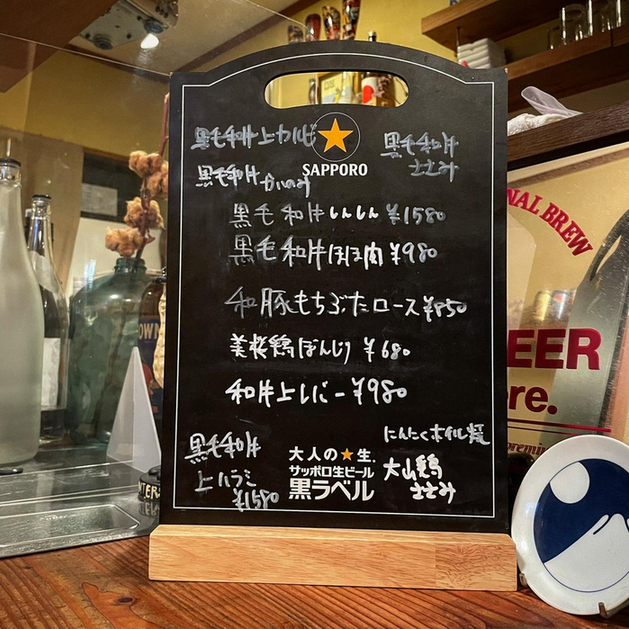 黒毛和牛上カルビ
黒毛和牛
ささみ
SAPPORO
黒毛和牛
かいのみ
黒毛和牛しんしん ¥1580
黒毛和牛ほほ肉 ¥980
和豚もちぶたロース ¥850
美桜鶏ぼんじり ¥680
和牛上レバー ¥980
にんにくホイル焼
黒毛和牛
上ハラミ
¥1580
大人の★生。
サッポロ生ビール
黒ラベル
大山鶏
ささみ
NAL BREW
EER
re.